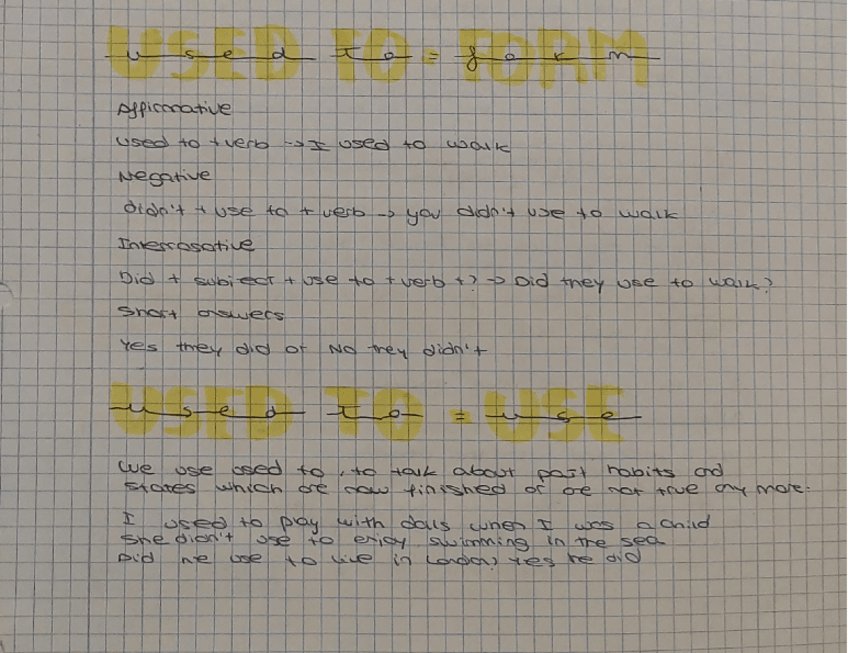 USED TO = FORM
Affirmative
used to + verb -> I used to walk
Negative
didn't + use to + verb -> you didn't use to walk
Interrogative
Did + subject + use to + verb + ? -> Did they use to walk?
Short answers
Yes they did or No they didn't
USED TO = USE
We use used to, to talk about past habits and
states which are now finished or are not true any more.
I used to play with dolls when I was a child
She didn't use to enjoy swimming in the sea
Did he use to live in London? Yes he did